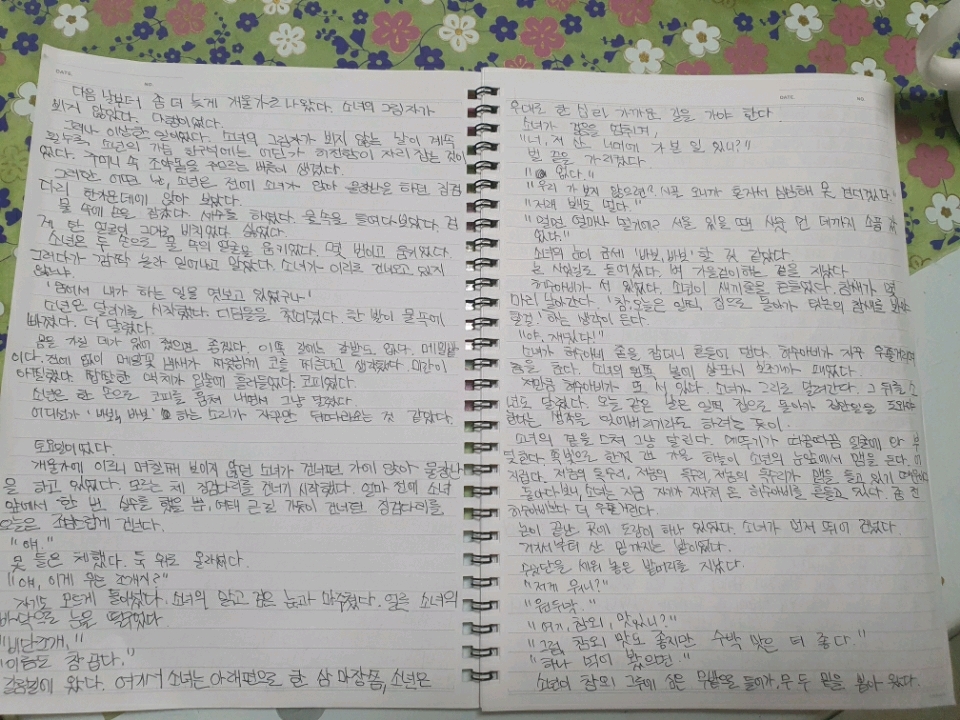 DATE
NO
다음 날부터 좀 더 늦게 개울가로 나왔다. 소녀의 그림자가
뵈지 않았다. 다행이었다.
그러나 이상한 일이었다. 소녀의 그림자가 뵈지 않는 날이 계속
될수록 소년의 가슴 한구석에는 어딘가 허전함이 자리 잡는 것이
었다. 주머니 속 조약돌을 주무르는 버릇이 생겼다.
그러한 어떤 날, 소년은 전에 소녀가 앉아 물장난을 하던 징검
다리 한가운데에 앉아 보았다.
물 속에 손을 잠갔다. 세수를 하였다. 물속을 들여다보았다. 검
게 탄 얼굴이 그대로 비치었다. 싫었다.
소년은 두 손으로 물 속의 얼굴을 움키었다. 몇 번이고 움키었다.
그러다가 깜짝 놀라 일어나고 말았다. 소녀가 이리로 건너오고 있지
않느냐.
'숨어서 내가 하는 일을 엿보고 있었구나'
소년은 달리기를 시작했다. 디딤돌을 헛디뎠다. 한 발이 물속에
빠졌다. 더 달렸다.
몸을 가릴 데가 있어 줬으면 좋겠다. 이쪽 길에는 갈밭도 없다. 메밀밭
이다. 전에 없이 메밀꽃 냄새가 짜릿하게 코를 찌른다고 생각했다. 미간이
아찔했다. 찝찔한 액체가 입술에 흘러들었다. 코피였다.
소년은 한 손으로 코피를 훔쳐 내면서 그냥 달렸다.
어디선가 '바보, 바보' 하는 소리가 자꾸만 뒤따라오는 것 같았다.
토요일이었다.
개울가에 이르니 며칠째 보이지 않던 소녀가 건너편 가에 앉아 물장난
을 하고 있었다. 모르는 체 징검다리를 건너기 시작했다. 얼마 전에 소녀
앞에서 한 번 실수를 했을 뿐, 여태 큰길 가듯이 건너던 징검다리를
오늘은 조심스럽게 건넌다.
"얘."
못 들은 체했다. 둑 위로 올라섰다.
"얘, 이게 무슨 조개지?"
자기도 모르게 돌아섰다. 소녀의 맑고 검은 눈과 마주쳤다. 얼른 소녀의
바닥으로 눈을 떨구었다.
"비단조개."
"이름도 참 곱다."
갈림길에 왔다. 여기서 소녀는 아래편으로 한 삼 마장쯤, 소년은
DATE
NO
우대로 한 십 리 가까운 길을 가야 한다.
소녀가 걸음을 멈추며,
"너, 저 산 너머에 가 본 일 있니?"
벌 끝을 가리켰다.
"없다."
"우리 가 보지 않으련? 시골 오니까 혼자서 심심해 못 견디겠다."
"저래 봬도 멀다."
"멀면 얼마나 멀기에? 서울 있을 땐 사뭇 먼 데까지 소풍 갔
었다."
소녀의 눈이 금세 '바보, 바보' 할 것 같았다.
논 사잇길로 들어섰다. 벼 가을걷이하는 곁을 지났다.
허수아비가 서 있었다. 소년이 새끼줄을 흔들었다. 참새가 몇
마리 날아간다. '참, 오늘은 일찍 집으로 돌아가 텃논의 참새를 봐야
할걸' 하는 생각이 든다.
"야, 재밌다!"
소녀가 허수아비 줄을 잡더니 흔들어 댄다. 허수아비가 자꾸 우쭐거리며
춤을 춘다. 소녀의 왼쪽 볼에 살포시 보조개가 패었다.
저만큼 허수아비가 또 서 있다. 소녀가 그리로 달려간다. 그 뒤를 소
년도 달렸다. 오늘 같은 날은 일찍 집으로 돌아가 집안일을 도와야
한다는 생각을 잊어버리기라도 하려는 듯이.
소녀의 곁을 스쳐 그냥 달린다. 메뚜기가 따끔따끔 얼굴에 와 부
딪친다. 쪽빛으로 한껏 갠 가을 하늘이 소년의 눈앞에서 맴을 돈다. 어
지럽다. 저놈의 독수리, 저놈의 독수리, 저놈의 독수리가 맴을 돌고 있기 때문이다.
돌아다보니, 소녀는 지금 자기가 지나쳐 온 허수아비를 흔들고 있다. 좀 전
허수아비보다 더 우쭐거린다.
논이 끝난 곳에 도랑이 하나 있었다. 소녀가 먼저 뛰어 건넜다.
거기서부터 산 밑까지는 밭이었다.
수숫단을 세워 놓은 밭머리를 지났다.
"저게 뭐니?"
"원두막."
"여기 참외, 맛있니?"
"그럼, 참외 맛도 좋지만 수박 맛은 더 좋다"
"하나 먹어 봤으면."
소년이 참외 그루에 심은 무밭으로 들어가, 무 두 밑을 뽑아 왔다.